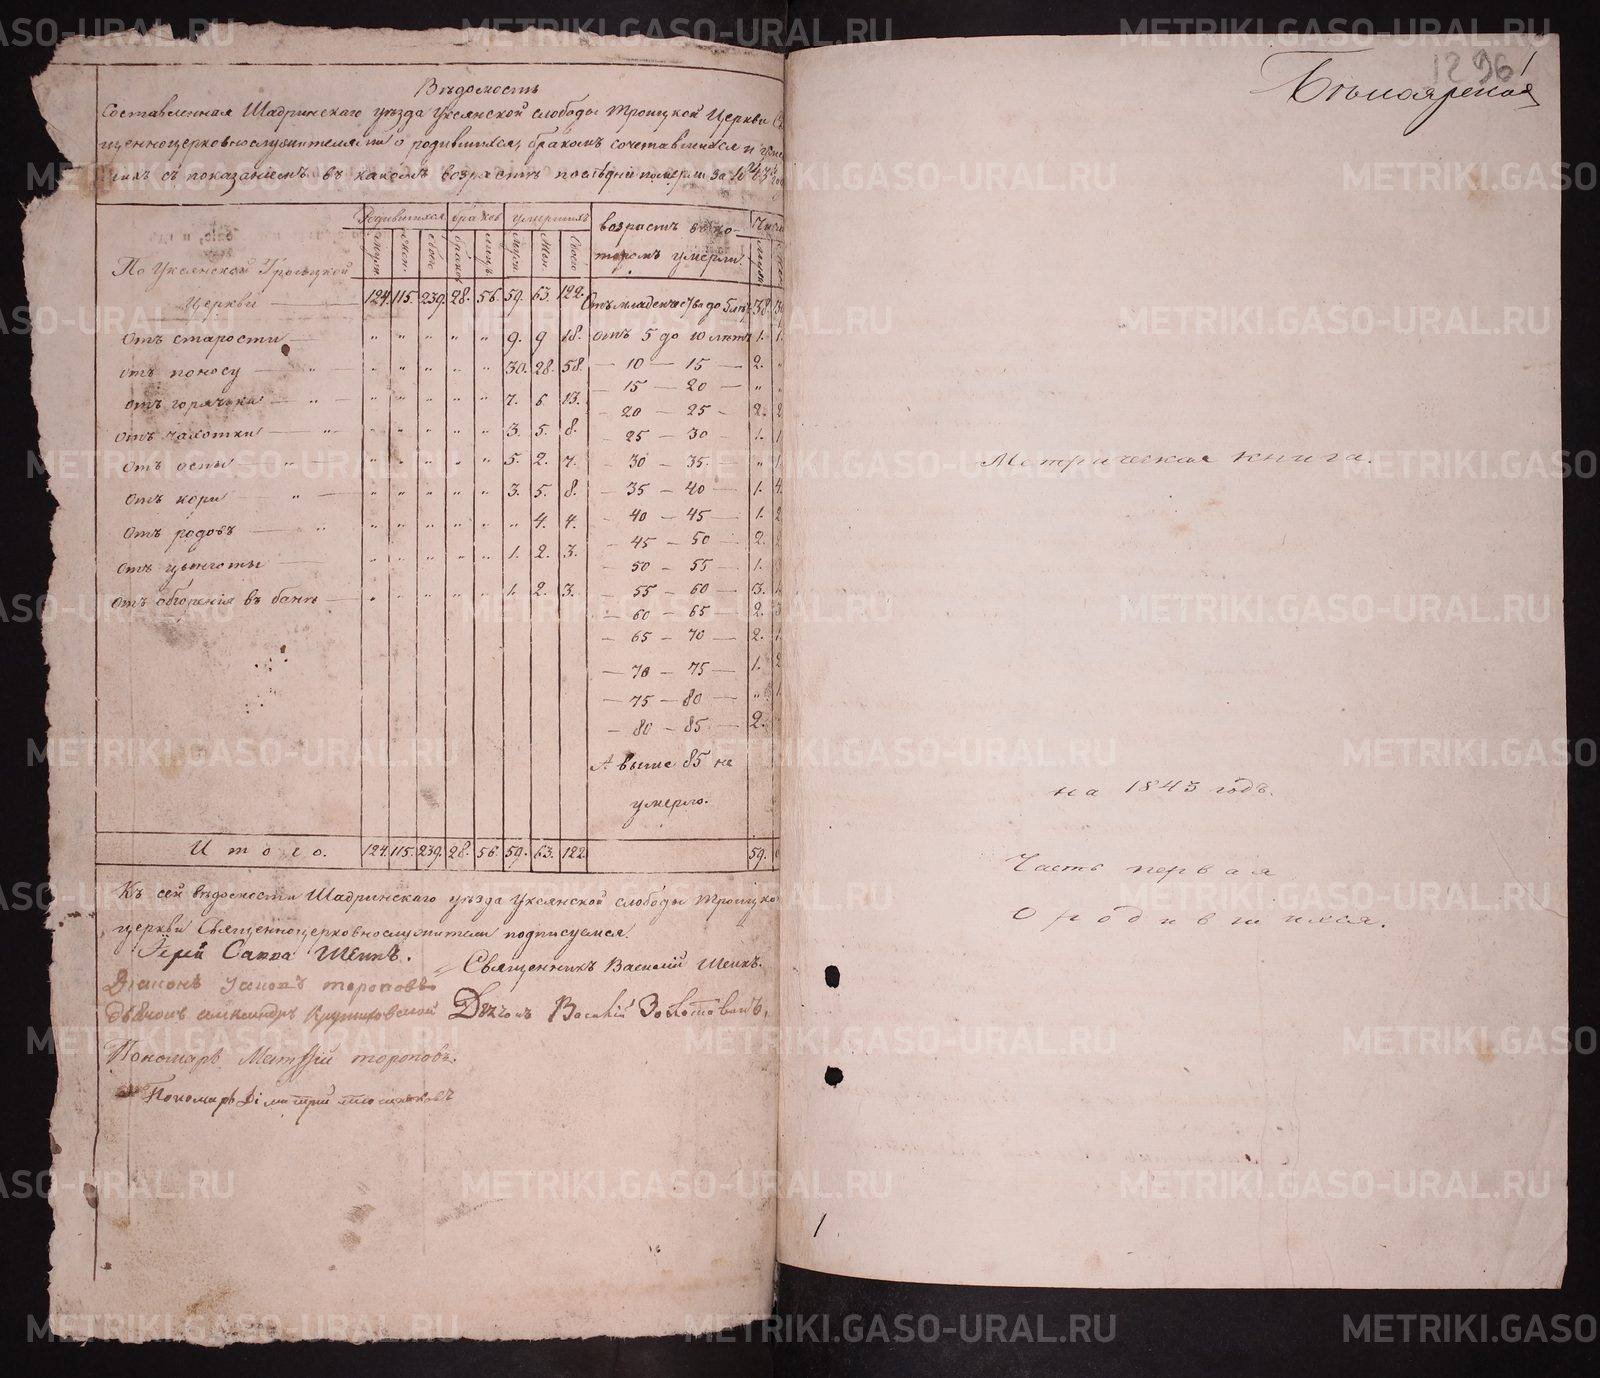 Вѣдомость
Составленная Шадринскаго уѣзда Уксянской слободы Троицкой Церкви
щенноцерковнослужителями о родившихся, бракомъ сочетавшихся и
съ показаніемъ въ какомъ возрастѣ послѣдніи померли за 1843
Родившихся браковъ умершихъ возрастъ въ ко-
торомъ умерли
мужск. женск. обоего браковъ лицъ Мужск. Жен. Всего
По Уксянской Троицкой
Церкви 124. 115. 239. 28. 56. 59. 63. 122. Отъ младенчества до 5 лѣтъ 38.
Отъ старости „ „ „ „ „ 9. 9 18. Отъ 5 до 10 лѣтъ 1. 1.
Отъ поносу „ „ „ „ „ „ 30. 28. 58. — 10 — 15 — 2. „
— 15 — 20 — „ „
Отъ горячки „ „ „ „ „ „ 7. 6 13. — 20 — 25 — 2. 2
Отъ чахотки „ „ „ „ „ „ 3. 5. 8. — 25 — 30 1. 1
Отъ оспы „ „ „ „ „ „ 5. 2. 7. — 30 — 35. — „ 1.
Отъ кори „ „ „ „ „ „ 3. 5. 8. — 35 — 40 — 1. 4.
Отъ родовъ „ „ „ „ „ „ „ 4. 4. — 40 — 45 — 1. 2
— 45 — 50 — 2.
Отъ цынготы „ „ „ „ „ 1. 2. 3. — 50 — 55 — 1.
Отъ обгоренія въ банѣ „ „ „ „ „ 1. 2. 3. — 55 — 60 — 3.
— 60 — 65 2. 3
— 65 — 70 — 2. 1.
— 70 — 75 — 1. 2
— 75 — 80 — „ 1
— 80 — 85 — 2.
А выше 85 не
умерло.
Итого. 124. 115. 239. 28. 56 59. 63. 122. 59.
Къ сей вѣдомости Шадринскаго уѣзда Уксянской слободы Троицко
церкви Священноцерковнослужители подписуемся.
Іерей Савва Шеинъ.
Священникъ Василій Шеинъ.
Діаконъ тороповъ
Дьячокъ Василій Золотовъ
Пономарь Матѳій тороповъ.
Пономарь Діматрій
1296
1
Бѣлоярская
Метрическая книга.
на 1843 годъ.
Часть первая
о родившихся.
1
METRIKI.GASO-URAL.RU